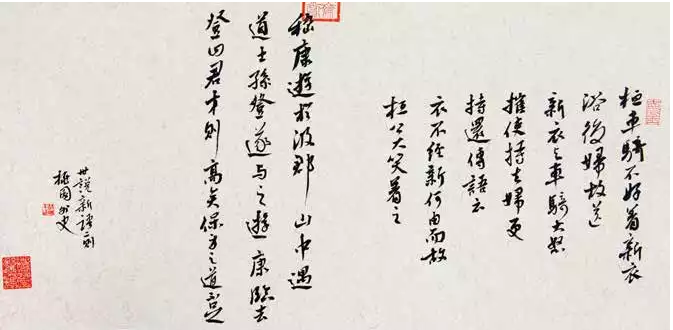 桓車騎不好著新衣
浴後婦故送
新衣與車騎大怒
摧使持去婦更
持還傳語云
衣不經新何由而故
桓公大笑著之
嵇康遊於汲郡山中遇
道士孫登遂与之遊康臨去
登曰君才則高矣保身之道
世說新語二則